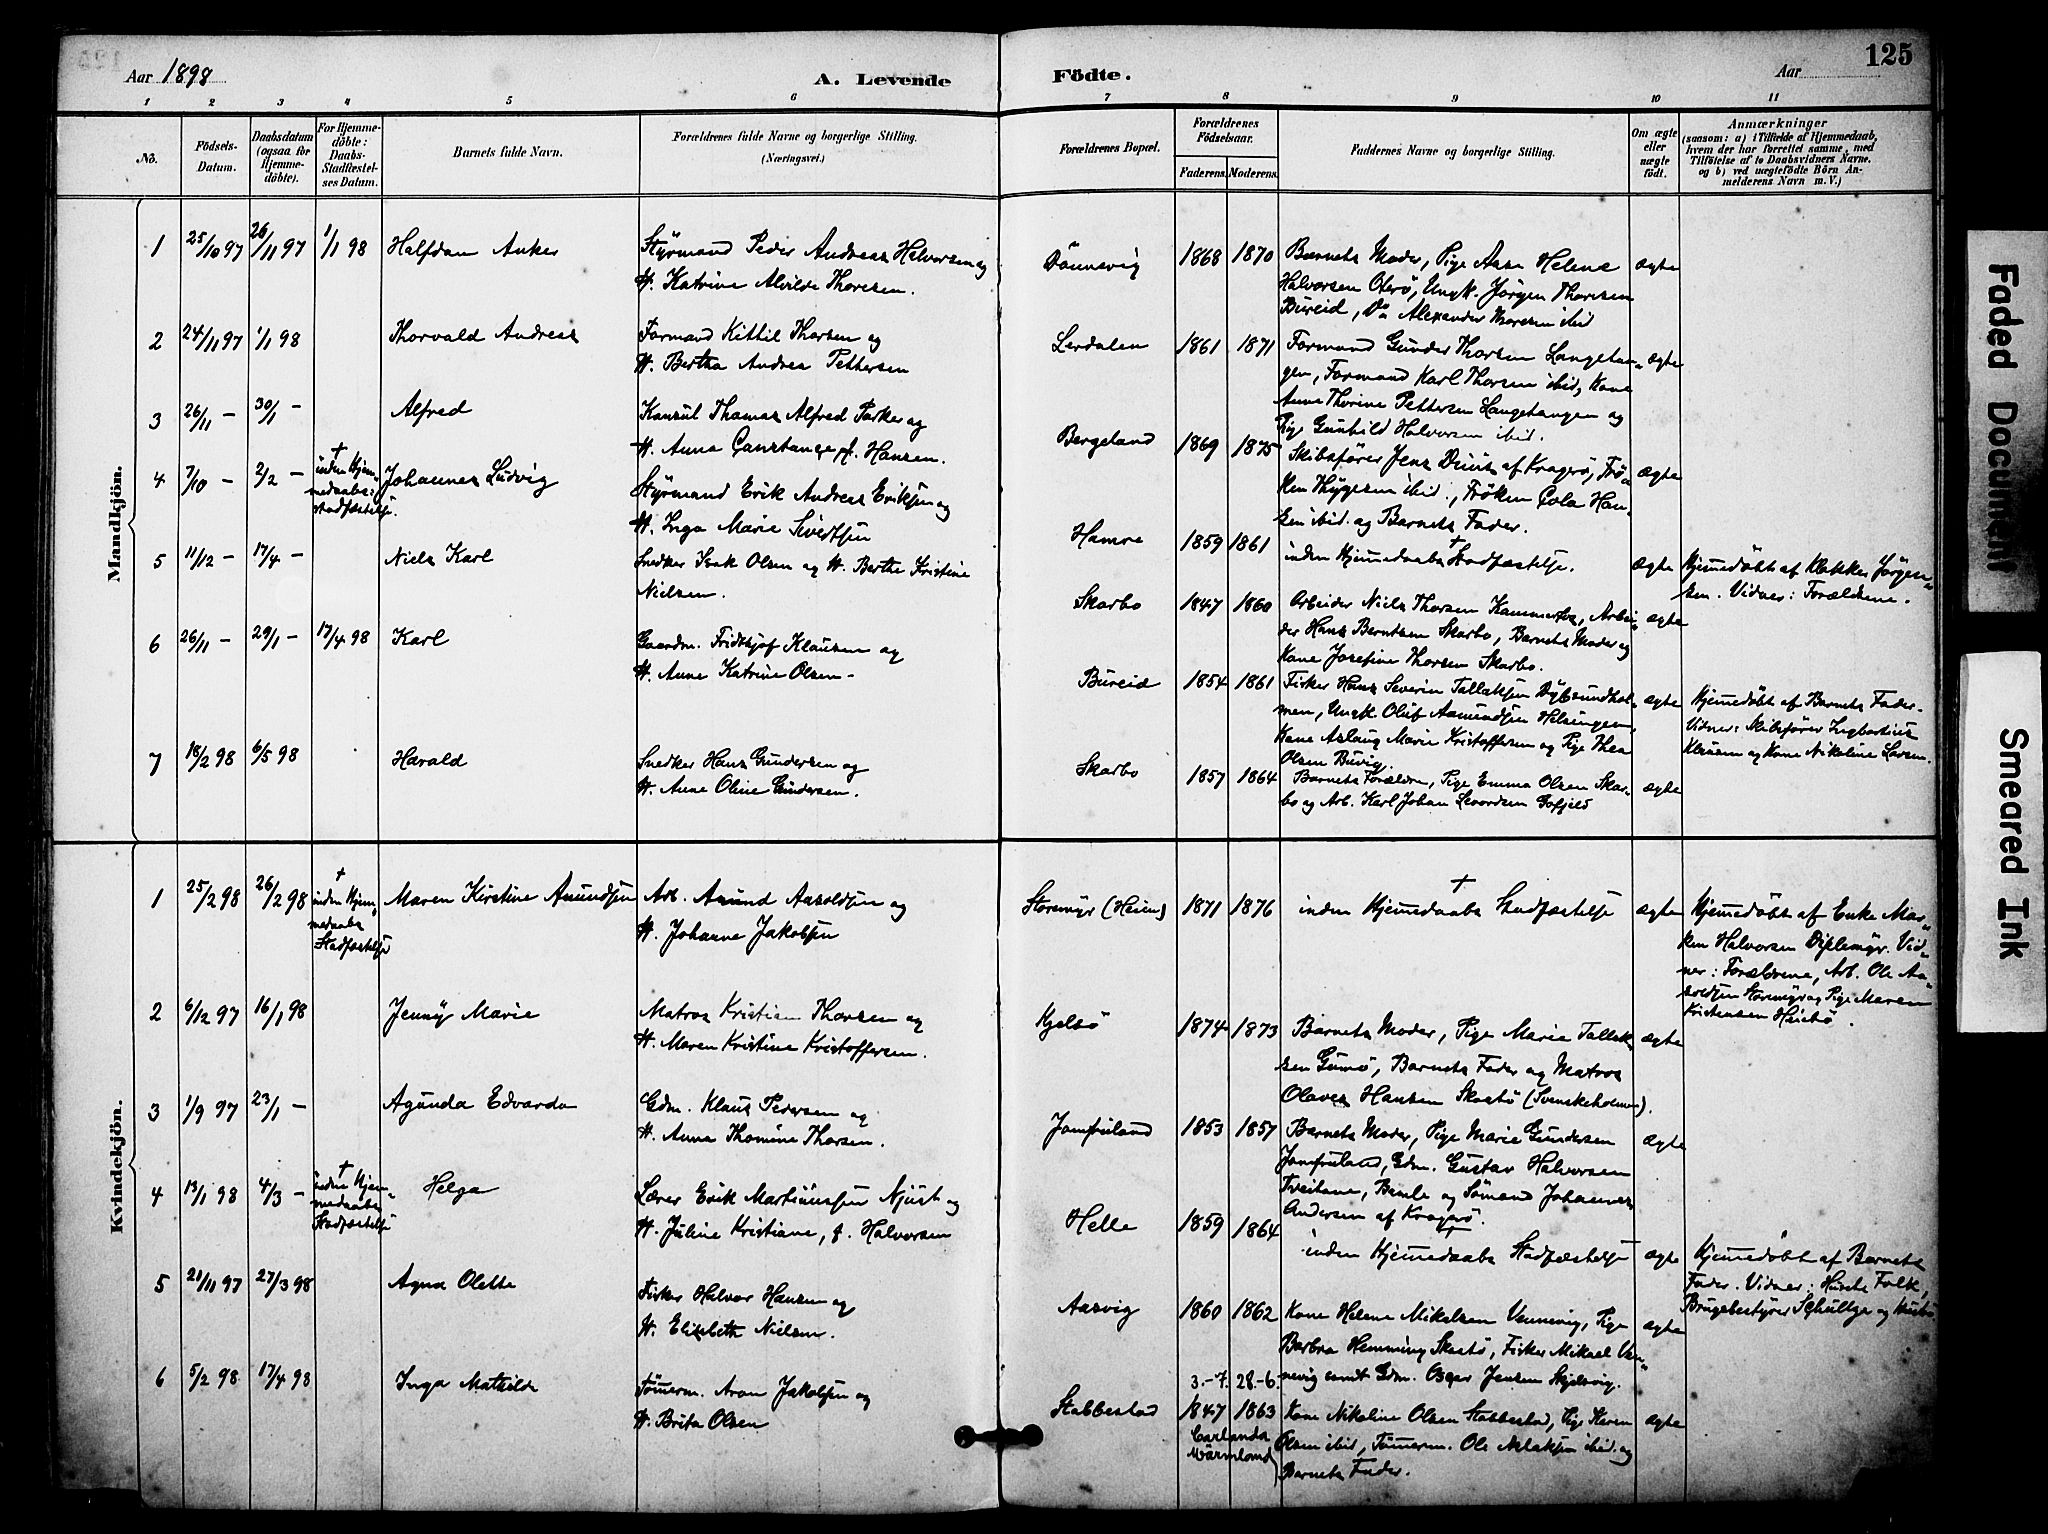 125
Aar 1898
A. Levende Födte.
Aar
1 2 3 4 5 6 7 8 9 10 11
No.
Födsels-Datum.
Daabsdatum (ogsaa for Hjemmedöbte).
For Hjemmedöbte: Daabs-Stadfæstelses Datum.
Barnets fulde Navn.
Forældrenes fulde Navne og borgerlige Stilling.
(Næringsvei.)
Forældrenes Bopæl.
Forældrenes Födselsaar.
Faderens. Moderens.
Faddernes Navne og borgerlige Stilling.
Om ægte eller uægte födt.
Anmærkninger
(saasom: a) i Tilfælde af Hjemmedaab, hvem der har forrettet samme, med Tilföielse af to Daabsvidners Navne. og b) ved uægtefödte Börn Anmelderens Navn m. V.)
Mandkjön.
1 25/10 97 26/11 97 1/1 98 Halfdan Anker
Styrmand Peder Andreas Halvorsen og
H. Katrine Alvilde Thoresen.
Dönnevig 1868 1870
Barnets Moder, Pige Aase Helene
Halvorsen Oterö, Ungk. Jörgen Thoresen
Bureid, Do Alexander Thoresen ibid
ægte
2 24/11 97 1/1 98 Thorvald Andreas
Formand Kittil Thorsen og
H. Bertha Andrea Pettersen
Lerdalen 1861 1871
Formand Gunder Thorsen Langetan-
gen, Formand Karl Thorsen ibid, Kone
Anne Thorine Pettersen Langetangen og
Pige Gunhild Halvorsen ibid.
ægte
3 26/11 – 30/1 – Alfred
Konsul Thomas Alfred Parker og
H. Anna Constance f. Hansen.
Bergeland 1869 1875
Skibsfører Jens Duus af Kragerö, Frö-
ken Thygesen ibid., Fröken Cola Han-
sen ibid. og Barnets Fader.
ægte
4 7/10 – 2/2 – † inden Hjem-
medaabs:
stadfæstelse.
Johannes Ludvig
Styrmand Erik Andreas Eriksen og
H. Inga Marie Sivertsen
Hamre 1859 1861
inden Hjemmedaabs † Stadfæstelse.
ægte
Hjemmedöbt af Klokker Jörgen-
sen. Vidner: Forældrene.
5 11/12 – 17/4 – Niels Karl
Snedker Isak Olsen og H. Berthe Kristine
Nielsen.
Skarbo 1847 1860
Arbeider Niels Thorsen Kammerfos, Arbei-
der Hans Berntsen Skarbo, Barnets Moder og
Kone Josefine Thorsen Skarbo.
ægte
6 26/11 – 29/1 – 17/4 98 Karl
Gaardm. Fridthjof Klausen og
H. Anne Katrine Olsen –
Bureid 1854 1861
Fisker Hans Severin Tallaksen Dybsundhol-
men, Ungk. Oluf Aamundsen Helsingen,
Kone Aslaug Marie Kristoffersen og Pige Thea
Olsen Buvig.
ægte
Hjemmedöbt af Barnets Fader.
Vidner: Skibsfører Ingbartius
Klausen og Kone Nikoline Larsen.
7 18/2 98 6/5 98 Harald
Snedker Hans Gundersen og
H. Anne Oline Gundersen.
Skarbo 1857 1864
Barnets Forældre, Pige Emma Olsen Skar-
bo og Arb. Karl Johan Levordsen Gofjeld
ægte
Kvindekjön.
1 25/2 98 26/2 98 † inden Hjem-
medaabs
Stadfæstelse
Maren Kirstine Amundsen
Arb. Amund Aaroldsen og
H. Johanne Jakobsen
Storemyr (Heien) 1871 1876
† inden Hjemmedaabs Stadfæstelse
ægte
Hjemmedöbt af Enke Mar-
ken Halvorsen Diplemyr. Vid-
ner: Forældrene, Arb. Ole Aa-
roldsen Storemyr og Pige Maren
Kristensen Heistö.
2 6/12 97 16/1 98 Jenny Marie
Matros Kristian Thorsen og
H. Maren Kristine Kristoffersen.
Kjelsö 1874 1873
Barnets Moder, Pige Marie Tallak-
sen Gumö, Barnets Fader og Matros
Olaves Hansen Skaatö (Svenskeholmen).
ægte
3 1/9 97 23/1 – Agunda Edvarda
Gdm. Klaus Pedersen og
H. Anna Thomine Thorsen.
Jomfruland 1853 1857
Barnets Moder, Pige Marie Gundersen
Jomfruland, Gdm. Gustav Halvorsen
Tveitane, Bamle og Sömand Johannes
Andersen af Kragerö.
ægte
4 13/1 98 4/3 – † inden Hjem-
medaabs
Stadfæstelse
Helga
Lærer Erik Martiniussen Njust og
H. Juline Kristiane, f. Halvorsen
Helle 1859 1864
† inden Hjemmedaabs Stadfæstelse
ægte
Hjemmedöbt af Barnets
Fader. Vidner: Folk,
Brugsbestyrer Schultze og Hustru
5 21/11 97 27/3 98 Agna Olette
Fisker Halvor Hansen og
H. Elisabeth Nielsen.
Aasvig 1860 1862
Kone Helene Mikalsen Vennevig, Pige
Barbra Hemming Skaatö, Fisker Mikael Ven-
nevig samt Gdm. Osger Jensen Skjelsvig.
ægte
6 5/2 98 17/4 98 Inga Mathilde
Tömerm. Aron Jakobsen og
H. Brita Olsen
Stabbestad
3.-7. 28.-6.
1847 1863
Carlanda
Wärmland)
Kone Nikoline Olsen Stabbestad, Pige Karen
Olsen ibid, Tömerm. Ole Nilsen ibid. og
Barnets Fader.
ægte
Faded Document
Smeared Ink